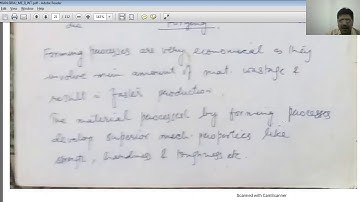 Forging
Forming processes are very economical as they
involve min amount of mat. wastage &
result in faster production.
The material processed by forming processes
develop superior mech. properties like
strength, hardness & toughness etc.
Scanned with CamScanner